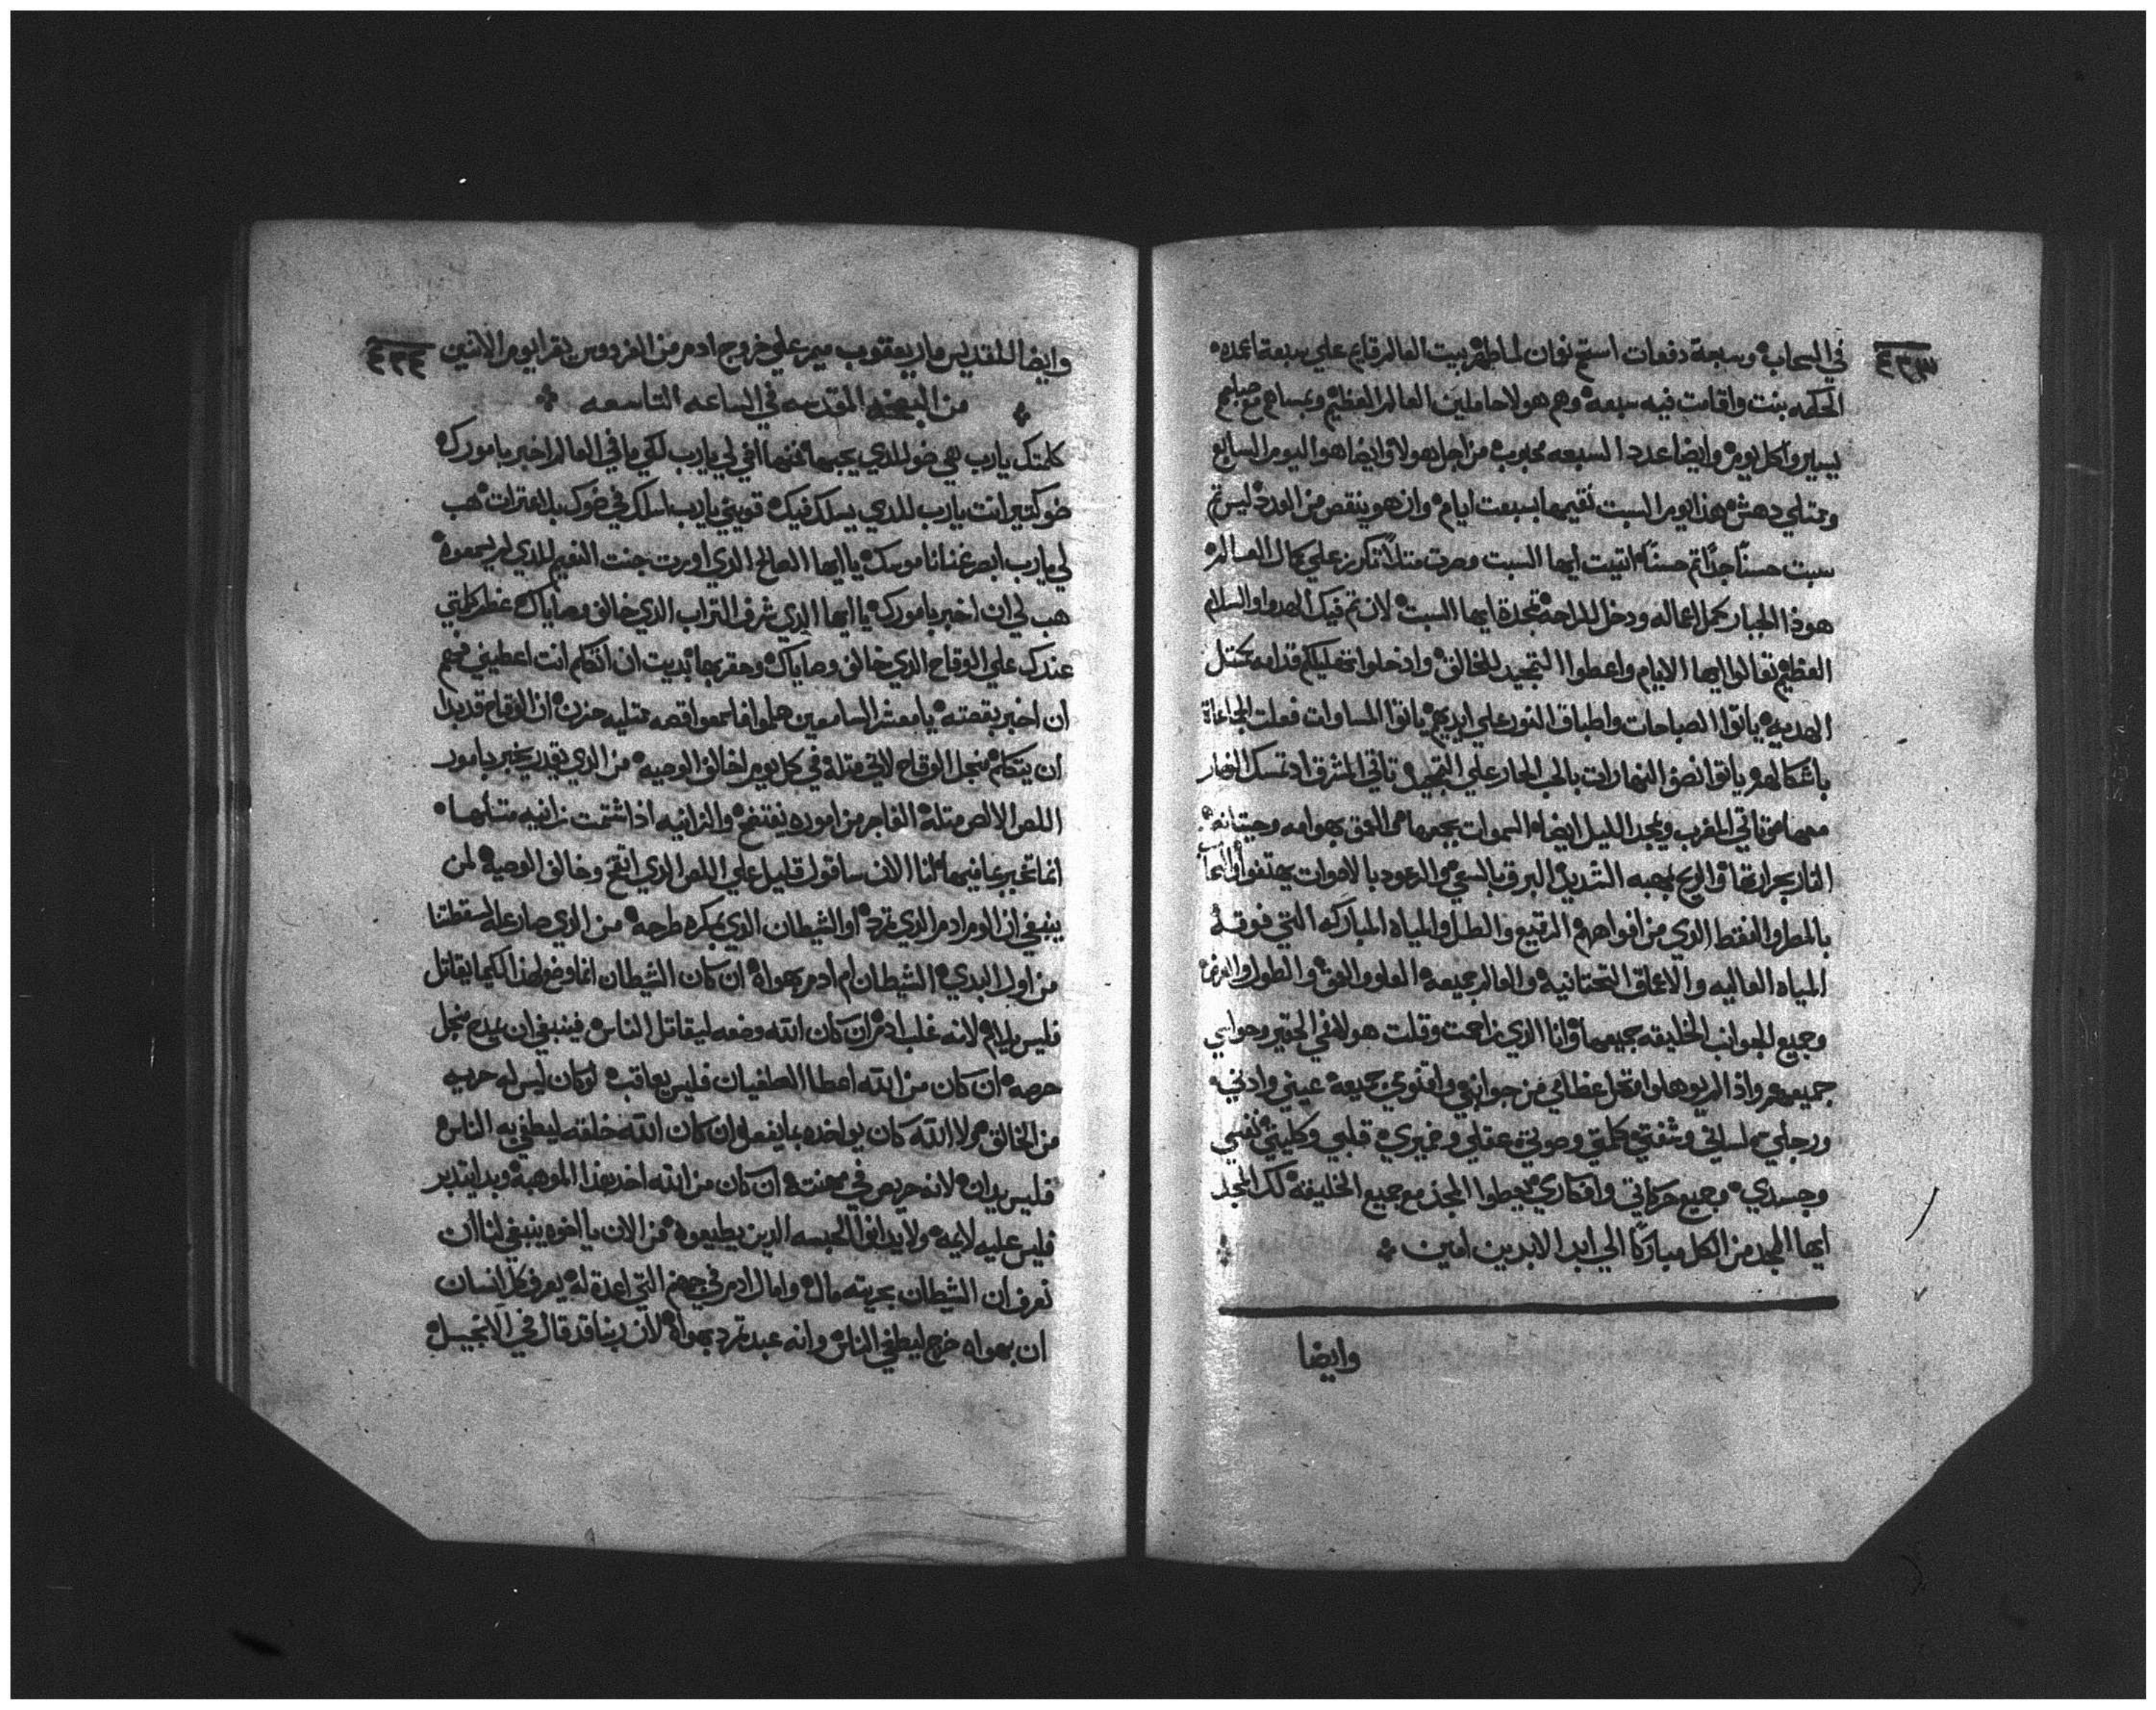 في السحاب وسبعة دفعات استحم نعمان لما طهر بيت العالم قايم علي سبعة اعمده
الحكمه بنت واقامت فيه سبعه وهم هولا حاملين العالم العظيم
يسايروا كل يوم وايضا عدد السبعه محبوب من اجل هولا وايضا هوا اليوم السابع
وممتلي دهش هذا يوم السبت نقيمها بسبعت ايام وان هو ينقص من العدد ليس تم
سبت حسنًا جدًا تم حسنًا اتيت ايها السبت وصرت مثلًا تكرز علي كمال العالم
هوذا الجبار كمل اعماله ودخل للراحه تمجدة ايها السبت لان تم فيك الهدوا والسلام
العظيم تعالوا ايها الايام واعطوا التمجيد للخالق وادخلوا قدامه
الهديه ياتوا الصباحات واطباق النور علي ايديهم ياتوا المساوات
باشكالهم ياتوا نصف النهارات بالحب الحار علي التمجيد تاتي المشرق اذ تمسك النهار
معها تاتي المغرب ويمجد الليل ايضا السموات بجمعها العمق بهوامه وحيتانه
النار بحرارتها والريح بهبه الشديد البرق بالسعي والرعود بالاصوات يهتفوا
بالمطر والنقط الذي من افواههم الرقيع والطل والمياه المباركه التي فوقه
المياه العاليه والاعماق التحتانيه والعالم جميعه العلو والعمق والطول والعرض
وجميع الجوانب الخليقه جميعها وانا الذي زاحمت وقلت هولا في الحقير وحواسي
جميعهم واذا لم يوهلوا عظامي من جواتي واقنومي جميعه عيني وادني
ورجلي لساني وشفتي كلمتي وصوتي عقلي وضميري قلبي وكليتي نفسي
وجسدي وجميع حركاتي وافكاري يعطوا المجد مع جميع الخليقه لك المجد
ايها المجد من الكل مباركًا الي ابد الابدين امين
وايضا
وايضا للقديس مار يعقوب ميمر علي خروج ادم من الفردوس يقرا يوم الاثنين
من البصخه المقدسه في الساعه التاسعه
كلمتك يا رب هي ضو للذي يحبها لي يا رب لكي ما في العالم اخبر بامورك
ضو كتير انت يا رب للذي يسلك فيك قويني يا رب اسلك في ضوك بلا عثرات هب
لي يا رب ابصر غنا ناموسك يا ايها الصالح الذي اورت جنت النعيم للذي لم يسمعوه
هب لي ان اخبر بامورك يا ايها الذي شرف التراب الذي خالف وصاياك عظم كلمتي
عندك علي الوقاح الذي خالف وصاياك وحقر بها بديت ان اتكلم انت اعطيني فهم
ان اخبر بقصته يا معشر السامعين هلموا فاسمعوا قصه ممتليه حزن ان الوقاح قد بدا
ان يتكلم منجل الوقاح لاني مثله في كل يوم اخالف الوصيه من الذي يقدر يخبر بامور
اللص الا لص مثله الفاجر من اموره يفتضح والزانيه اذا شتمت زانيه مثلها
انما تخبر عما فيها انا الان ساقول قليل علي اللص الذي اتقح وخالف الوصيه لمن
ينبغي ان الوم ادم الذي تمرد او الشيطان الذي بمكره طرحه من الذي صار عله لسقطتنا
من اول البدي الشيطان ام ادم بهواه ان كان الشيطان انما وضع لهذا لكيما يقاتل
فليس يلام لانه غلب ادم ان كان الله وضعه ليقاتل الناس فينبغي ان يمدح منجل
حرصه ان كان من الله اعطا الطغيان فليس يعاقب لو كان ليس له حريه
من الخالق لولا الله كان يواخده بما يفعل ان كان الله خلقه ليطغي به الناس
فليس يدان لانه حريص في مهنته ان كان من الله اخد هذا الموهبه وبدا يتدبر
فليس عليه لايمه ولا يدانوا الحبسه الذين يطيعوه من الان يا اخوه ينبغي لنا ان
نعرف ان الشيطان بحريته مال وامال ادم في جهنم التي اعدة له يعرف كل انسان
ان بهواه خرج ليطغي الناس وانه عبد تمرد بهواه لان ربنا قد قال في الانجيل